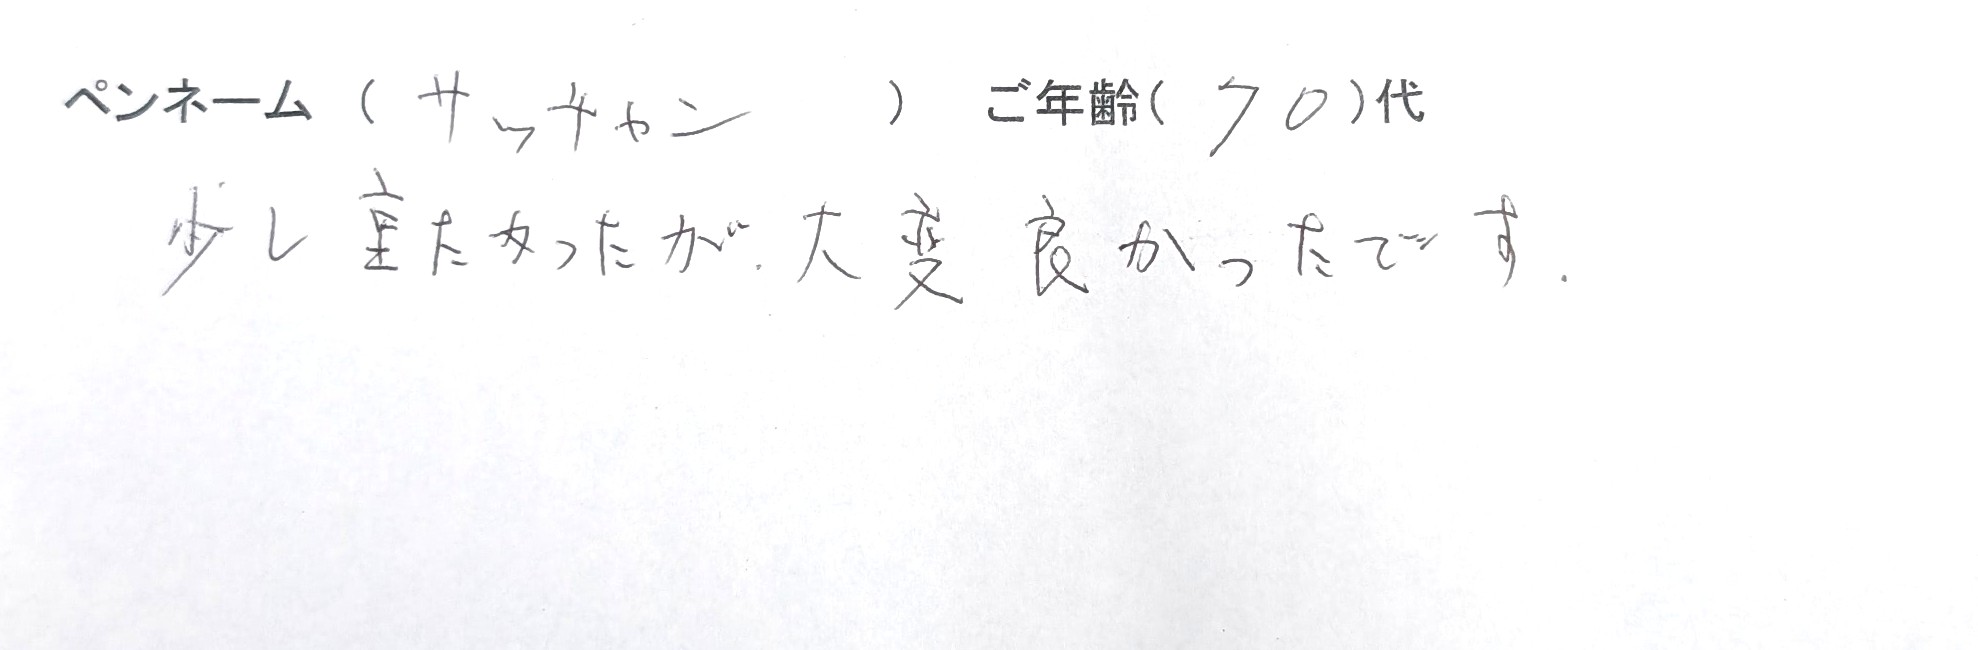 ペンネーム（サッチャン）ご年齢(70)代
少し重たかったが.大変良かったです.